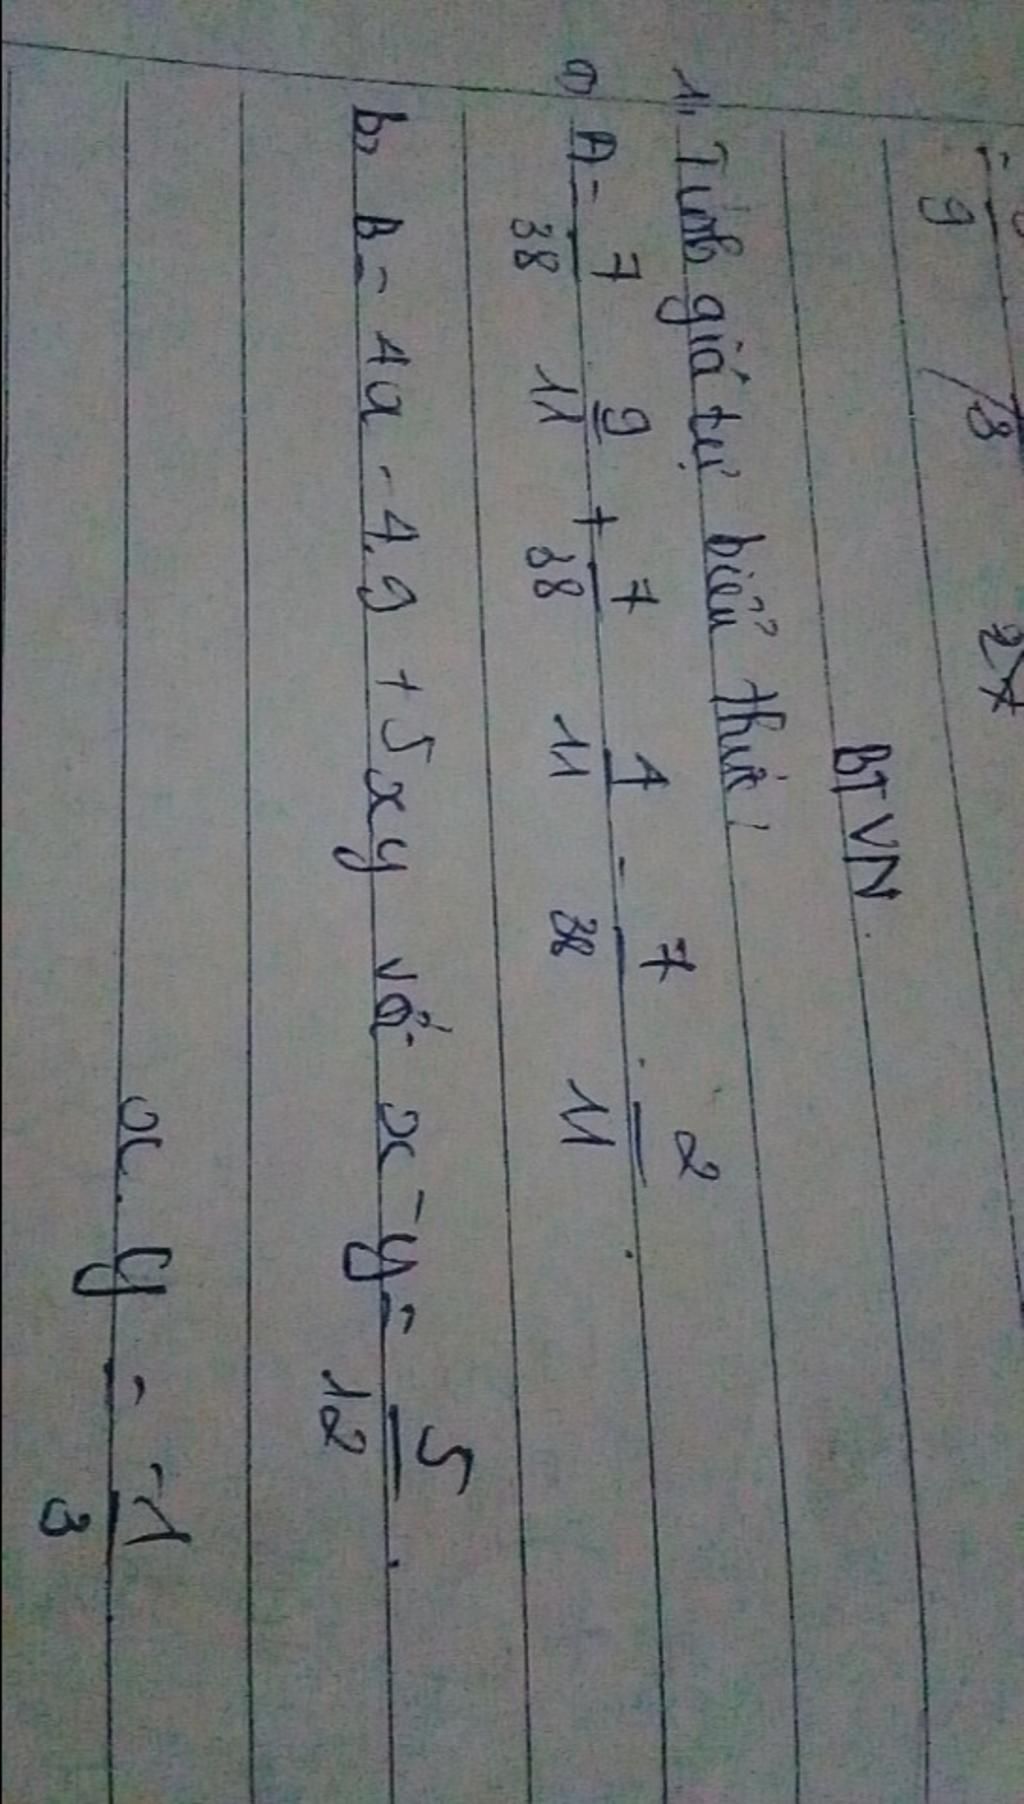 9 18 27
BTVN.
1, Tính giá trị biểu thức:
a, A = 7/38 9/11 + 7/38 1/11 - 7/38 . 2/11 .
b, B = 4a - 4.9 + 5xy với x - y = 5/12 .
x . y = -1/3